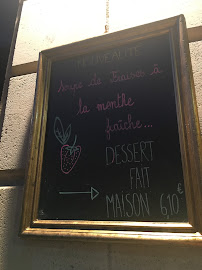 Soupe de Fraises à
la menthe
fraîche...
DESSERT
FAIT
MAISON 6,10€